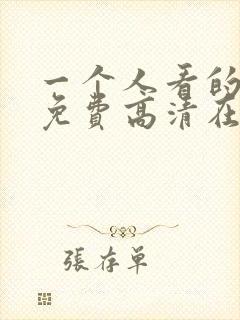 一个人看的
免費高清在
張存单